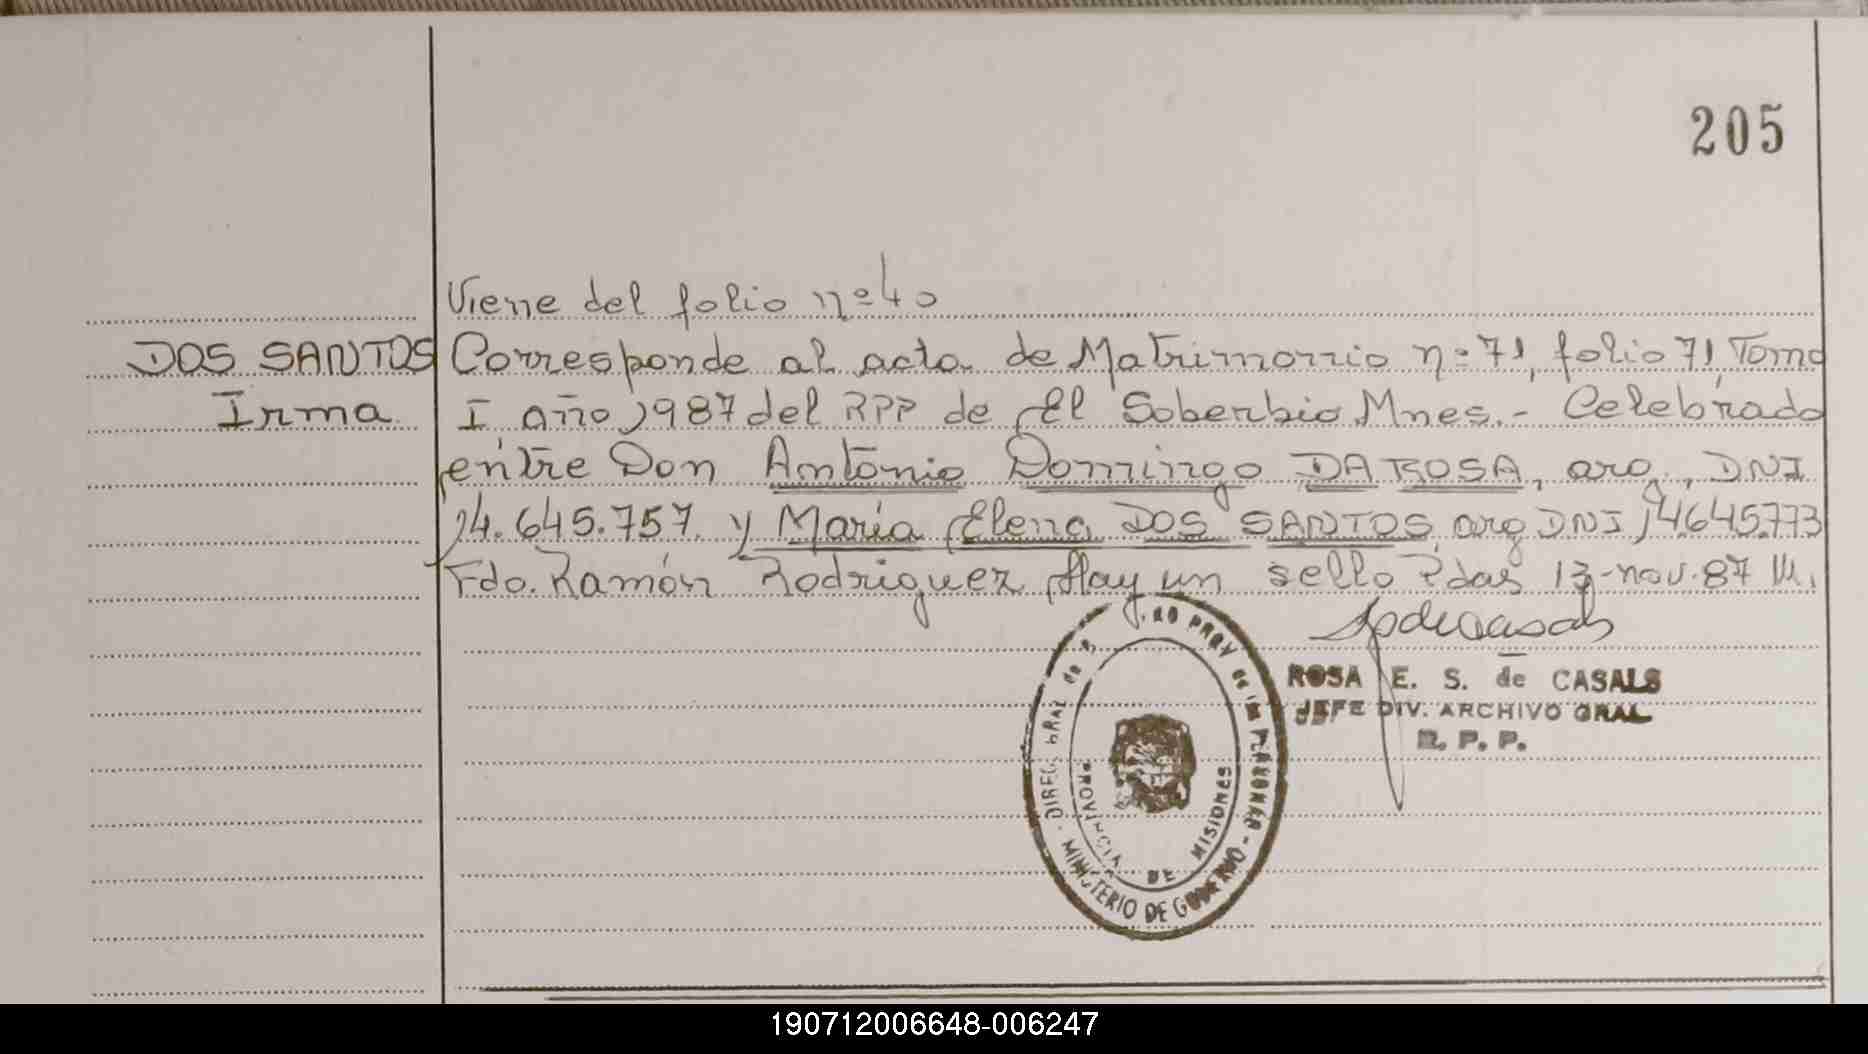 205
Viene del folio nº 40
DOS SANTOS Corresponde al acta de Matrimonio nº 71, folio 71, Tomo
Irma I año 1987 del RPP de El Soberbio Mnes.- Celebrado
entre Don Antonio Domingo DA ROSA, arg., DNI
14.645.757 y María Elena DOS SANTOS arg DNI 14.645.773
Fdo. Ramón Rodriguez Hay un sello Pdas 13-nov.87
ROSA E. S. de CASALS
JEFE DIV. ARCHIVO GRAL
R. P. P.
PROV de las PERSONAS
MINISTERIO DE GOBIERNO
PROVINCIA DE MISIONES
190712006648-006247